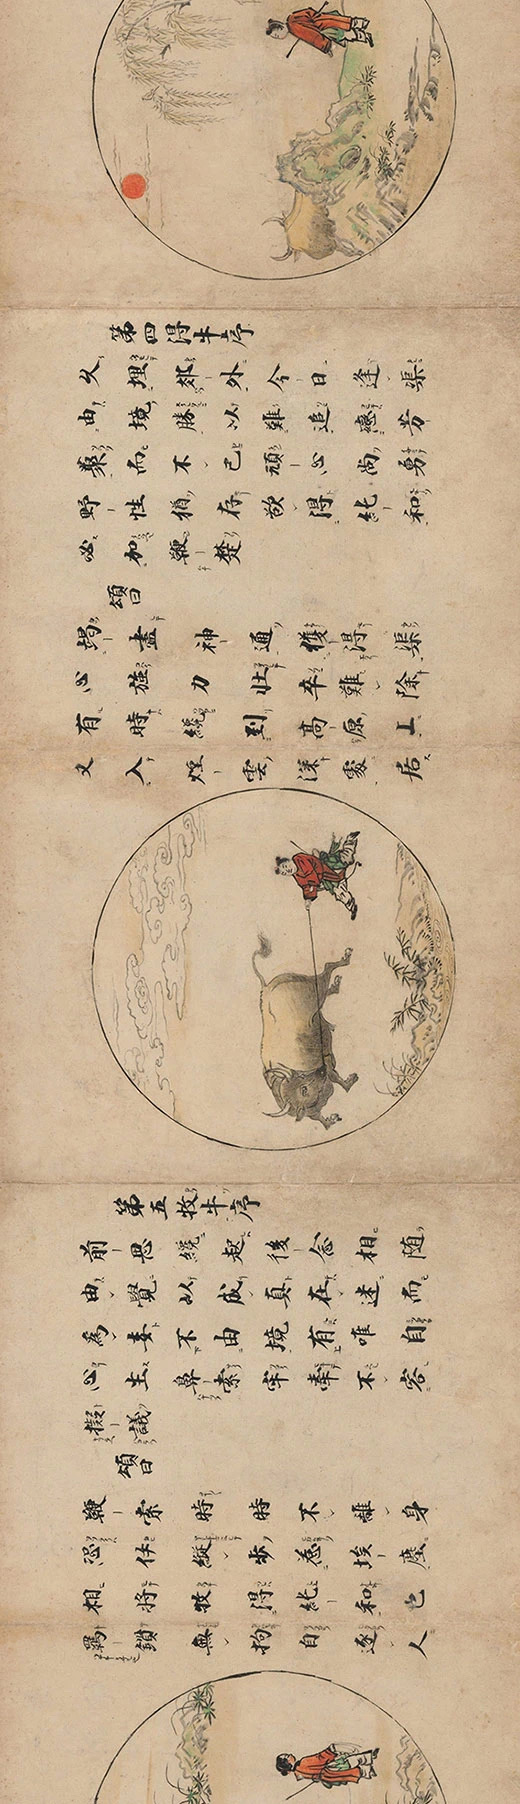 第四得牛序
久埋郊外今日逢渠
由境勝以難追戀芳
叢而不已頑心尚勇
野性猶存欲得純和
必加鞭楚
頌曰
竭盡神通獲得渠
心強力壯卒難除
有時纔到高原上
又入煙雲深處居
第五牧牛序
前思纔起後念相随
由覺以成真在迷而
為妄不由境有唯自
心生鼻索牢牽不容
擬議
頌曰
鞭索時時不離身
恐伊縱步惹埃塵
相將牧得純和也
羈鎖無拘自逐人